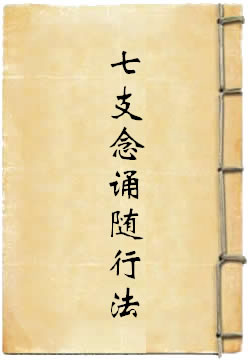 七支念诵随行法